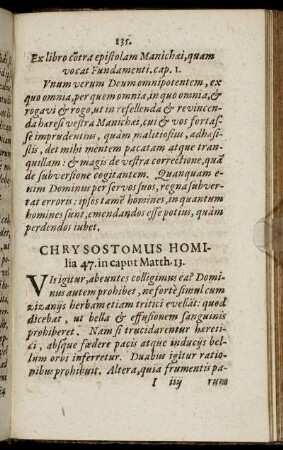 135.
Ex libro cõtra epistolam Manichæi, quam
vocat Fundamenti. cap. 1.
Vnum verum Deum omnipotentem, ex
quo omnia, per quem omnia, in quo omnia, &
rogavi & rogo, ut in refellenda & revincen-
da hæresi vestra Manichæa, cui & vos fortas-
se imprudentius, quàm malitiosius, adhæsi-
stis, det mihi mentem pacatam atque tran-
quillam: & magis de vestra correctione, quã
de subversione cogitantem. Quanquam e-
nim Dominus per servos suos, regna subver-
tat erroris: ipsos tamẽ homines, in quantum
homines sunt, emendandos esse potius, quàm
perdendos iubet.
CHRYSOSTOMUS HOMI-
lia 47. in caput Matth. 13.
VIs igitur, abeuntes colligimus ea? Domi-
nus autem prohibet, ne fortè simul cum
zizanijs herbam etiam tritici evellãt: quod
dicebat, ut bella & effusionem sanguinis
prohiberet. Nam si trucidarentur hæreti-
ci, absque fœdere pacis atque inducijs bel-
lum orbi inferretur. Duabus igitur ratio-
nibus prohibuit. Altera, quia frumentis pa-
I iiij rum